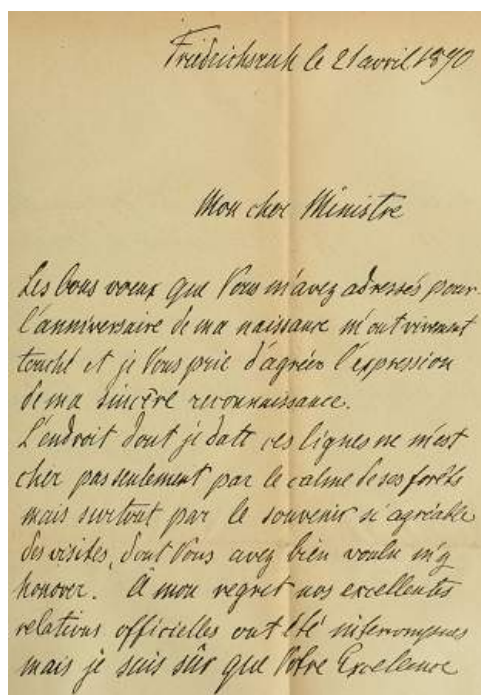 Friedrichsruh le 21 avril 1890
Mon cher Ministre
Les bons voeux que Vous m'avez adressés pour
l'anniversaire de ma naissance m'ont vivement
touché et je Vous prie d'agréer l'expression
de ma sincère reconnaissance.
L'endroit dont je date ces lignes ne m'est
cher pas seulement par le calme de ses forêts
mais surtout par le souvenir si agréable
des visites, dont Vous avez bien voulu m'y
honorer. À mon regret nos excellentes
relations officielles ont été interrompues
mais je suis sûr que Votre Excellence